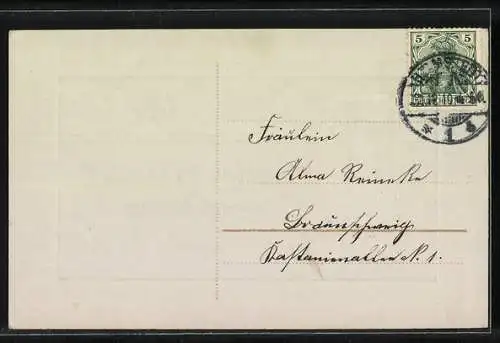 5 5
Fräulein
Alma Reineke
Braunschweig
Kastanienallee N. 1.